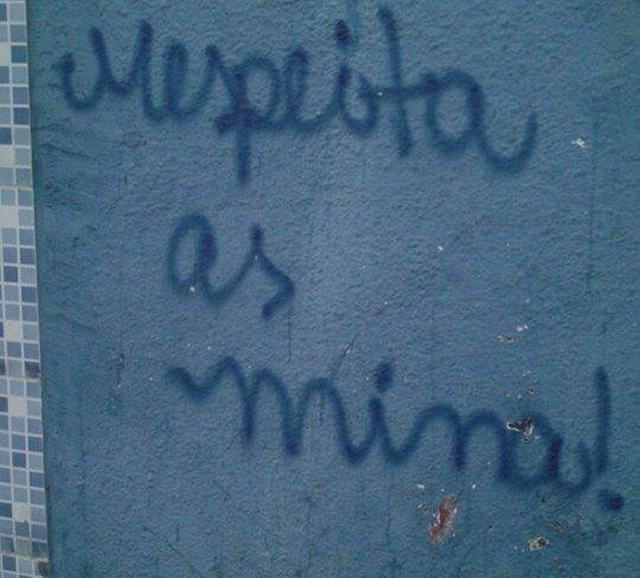 Respeita
as
mina!